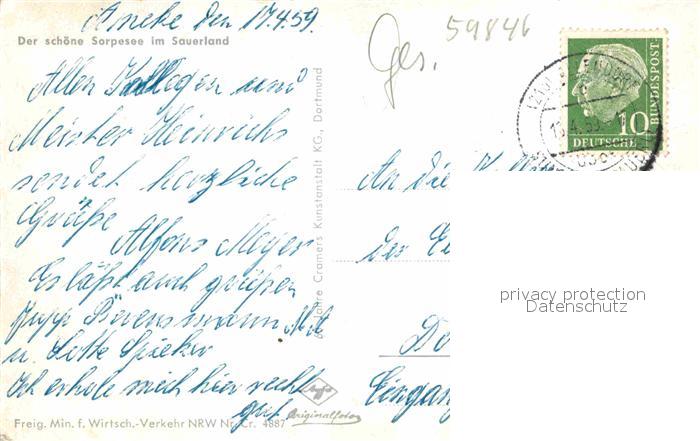 Ameke den 17.4.59.
Der schöne Sorpesee im Sauerland
Allen Kollegen und
Meister Heinrichs
sendet herzliche
Grüße
Alfons Meyer
Es läßt auch grüßen
Jupp
u. Lotte Spieker
Ich erhole mich hier recht
gut.
Freig. Min. f. Wirtsch.-Verkehr NRW Nr. Cr. 4887
Jahre Cramers Kunstanstalt KG., Dortmund
Agfa
Originalfoto
Ges.
59846
10
DEUTSCHE
BUNDESPOST
An die
der
Do
Eingang
privacy protection
Datenschutz